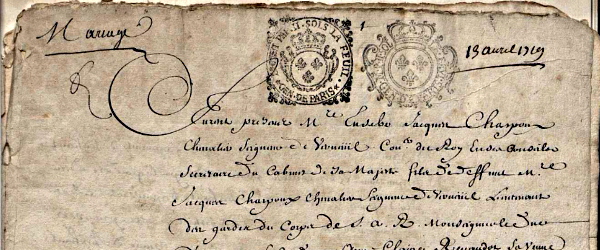 Mariage
DEUX SOLS LA FEUIL.
GEN. DE PARIS
13 avril 1719
Furent présens Mre Eusebe Jacques Chaspoux
Chevalier Seigneur de Verneüil Conr du Roy En ses Conseils
Secretaire du Cabinet de sa Majesté fils de deffunt Mre
Jacques Chaspoux Chevalier Seigneur de Verneüil Lieutenant
des gardes du Corps de S. A. R. Monseigneur le Duc
Claire Renaudot sa veuve